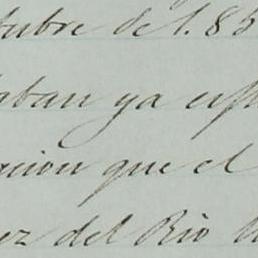 tubre de 1.85
taban ya esp
ación que el
ez del Rio